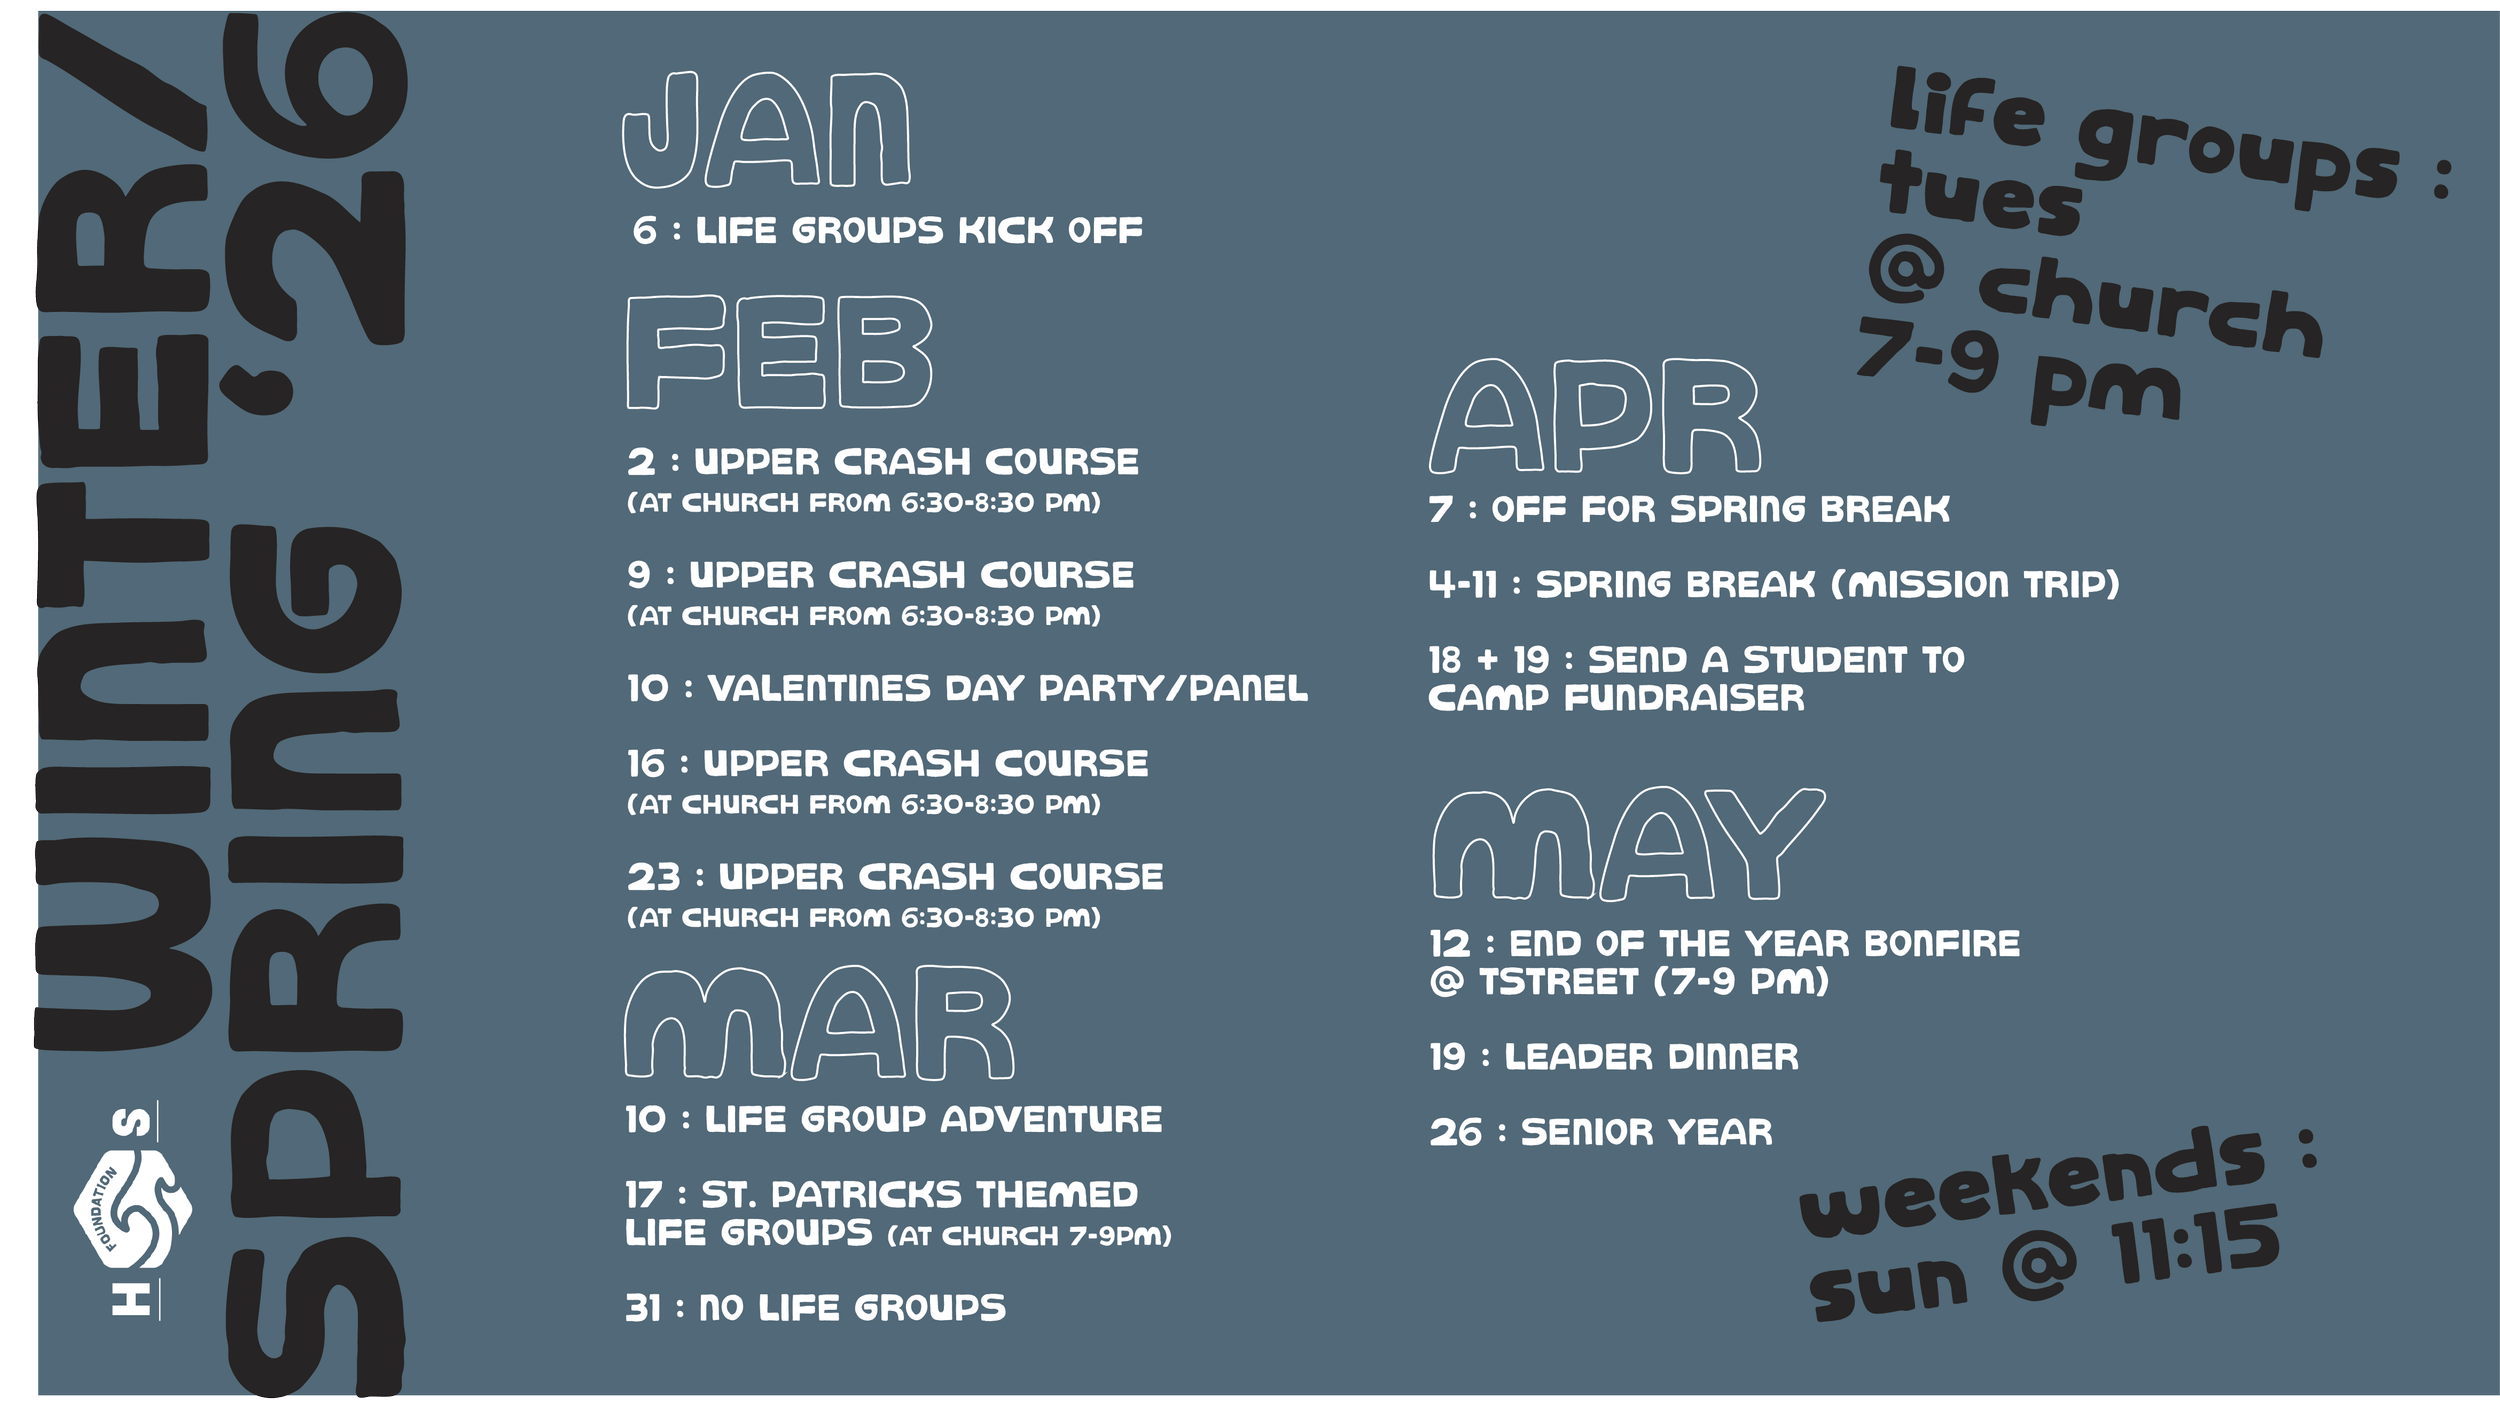 WINTER/
SPRING '26
H FOUNDATION S
JAN
6 : LIFE GROUPS KICK OFF
FEB
2 : UPPER CRASH COURSE
(AT CHURCH FROM 6:30-8:30 PM)
9 : UPPER CRASH COURSE
(AT CHURCH FROM 6:30-8:30 PM)
10 : VALENTINES DAY PARTY/PANEL
16 : UPPER CRASH COURSE
(AT CHURCH FROM 6:30-8:30 PM)
23 : UPPER CRASH COURSE
(AT CHURCH FROM 6:30-8:30 PM)
MAR
10 : LIFE GROUP ADVENTURE
17 : ST. PATRICKS THEMED
LIFE GROUPS (AT CHURCH 7-9PM)
31 : NO LIFE GROUPS
life groups :
tues
@ church
7-9 pm
APR
7 : OFF FOR SPRING BREAK
4-11 : SPRING BREAK (MISSION TRIP)
18 + 19 : SEND A STUDENT TO
CAMP FUNDRAISER
MAY
12 : END OF THE YEAR BONFIRE
@ TSTREET (7-9 PM)
19 : LEADER DINNER
26 : SENIOR YEAR
weekends :
sun @ 11:15